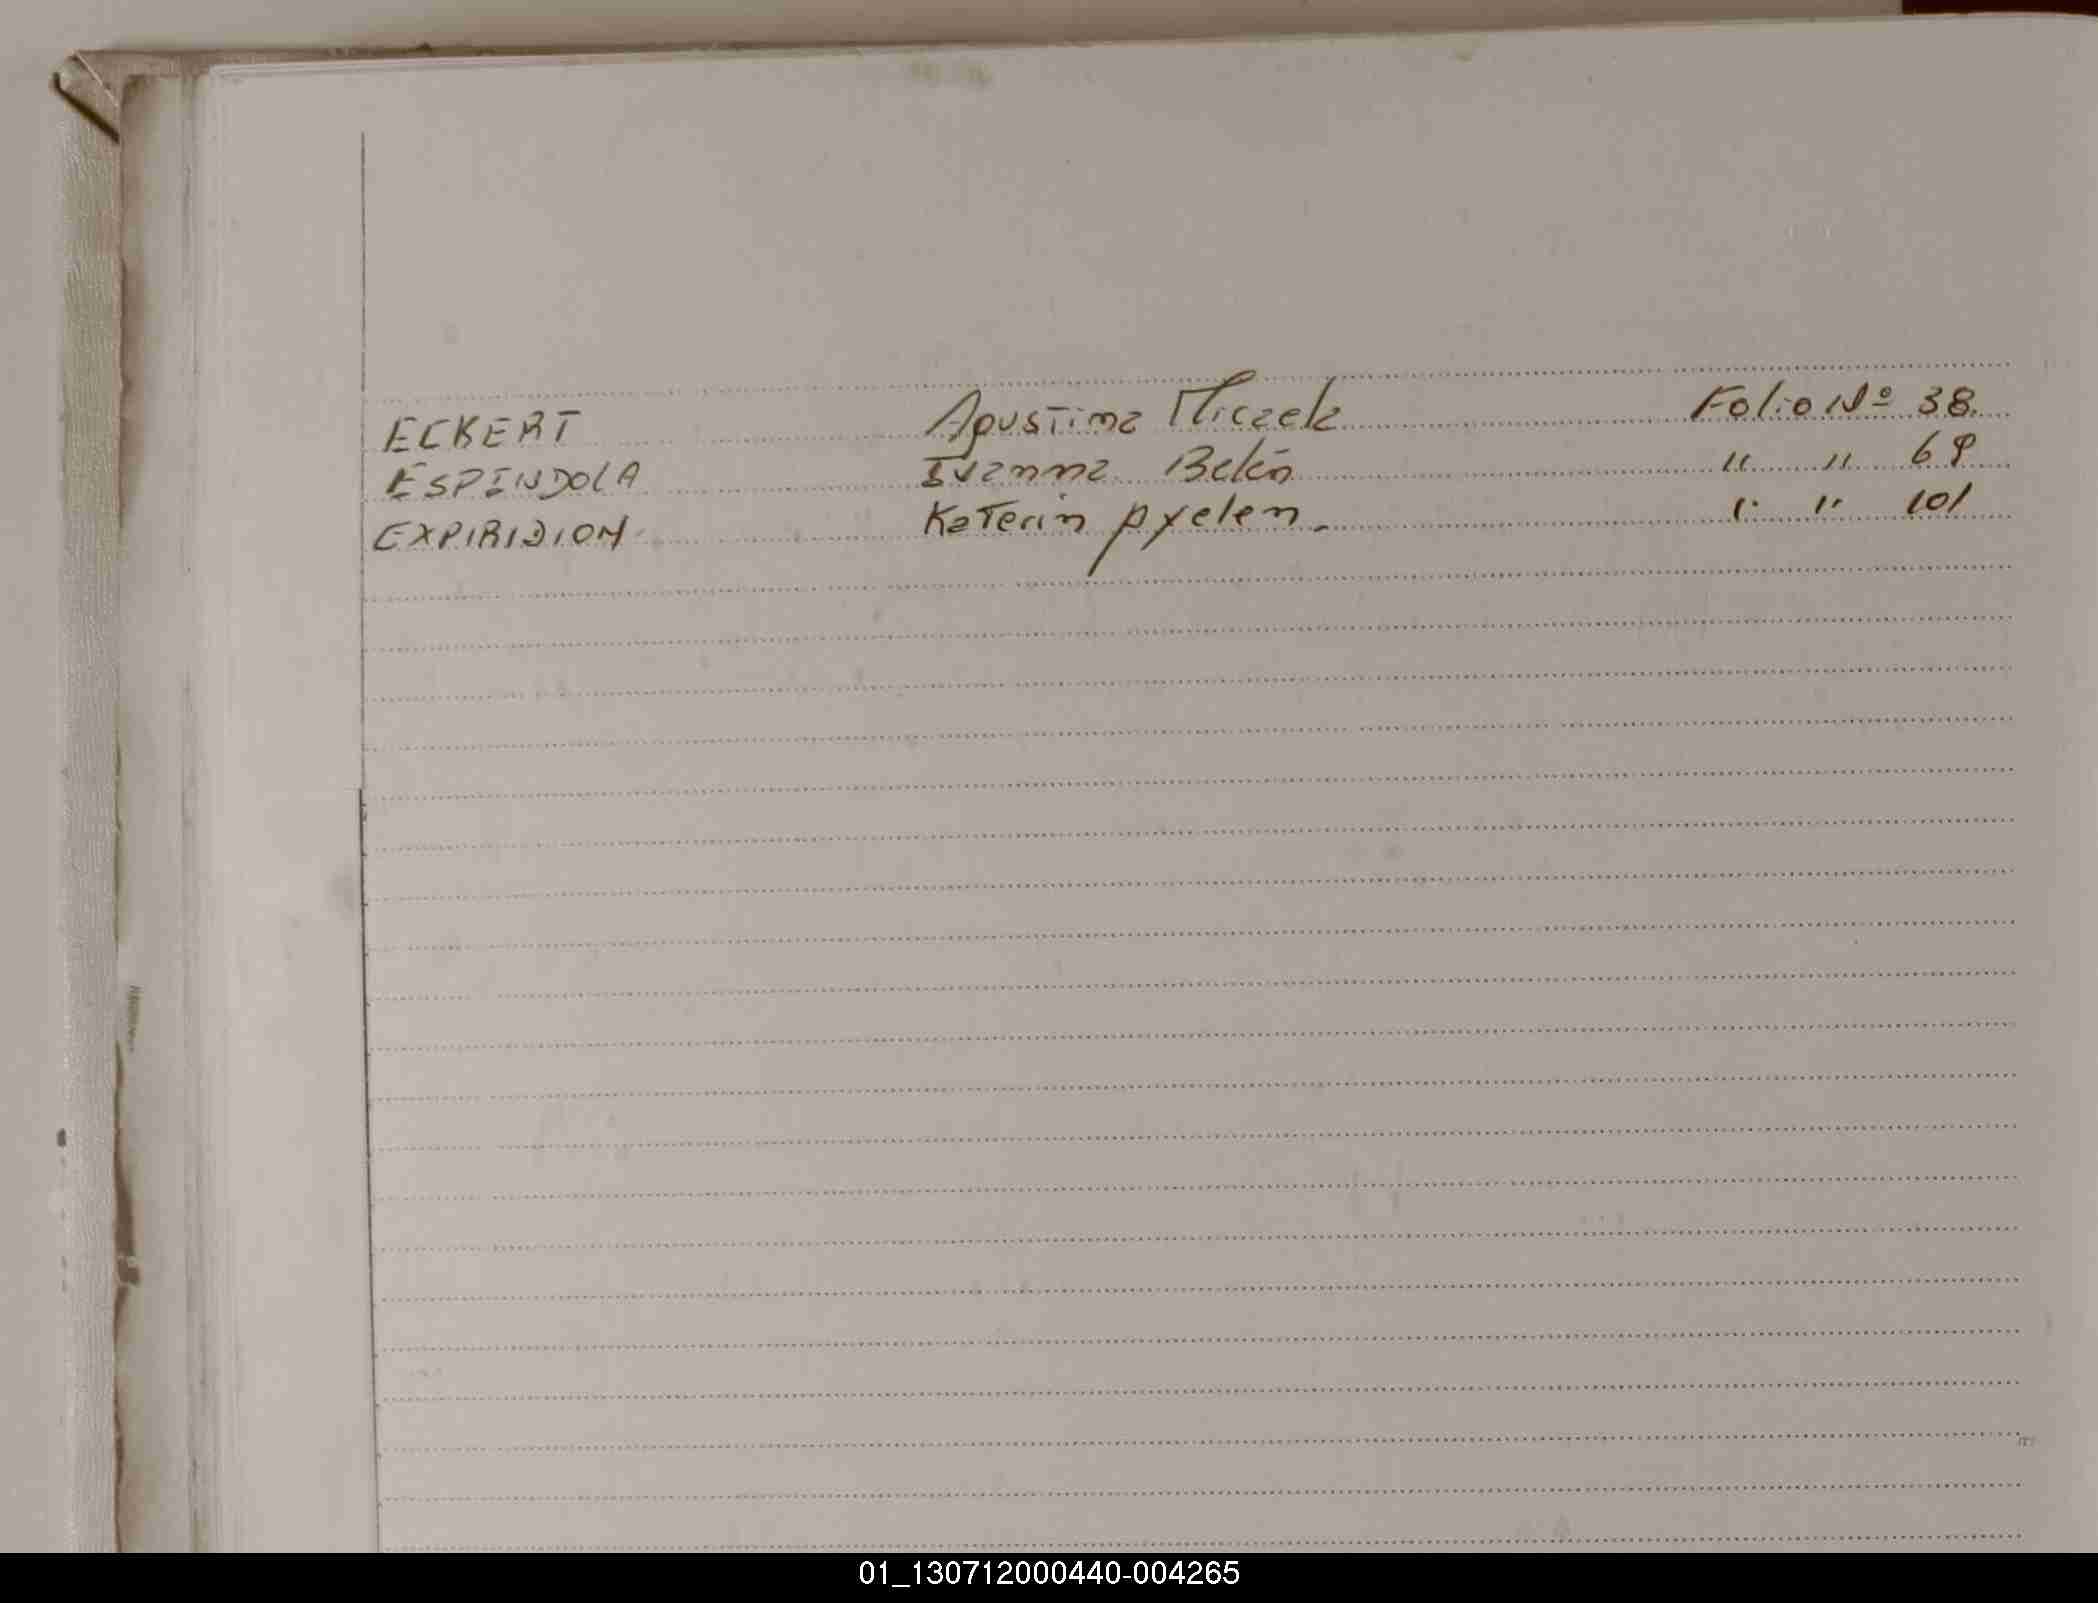 ECKERT Agustina Micaela Folio Nº 38.
ESPINDOLA Ivanna Belén " " 69
EXPIRIDION Katerin Ayelen. " " 101
01_130712000440-004265